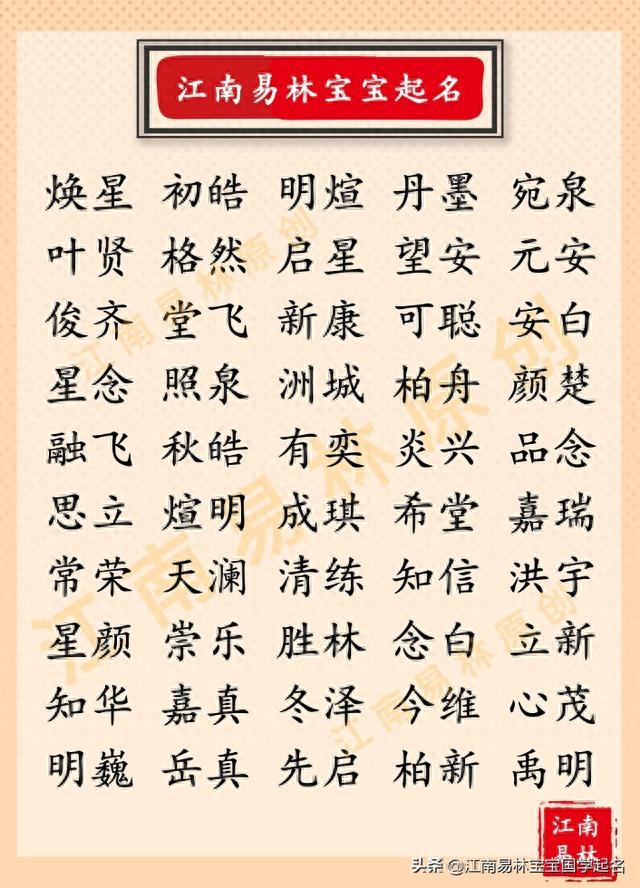 江南易林宝宝起名
焕星 初皓 明煊 丹墨 宛泉
叶贤 格然 启星 望安 元安
俊齐 堂飞 新康 可聪 安白
星念 照泉 洲城 柏舟 颜楚
融飞 秋皓 有奕 炎兴 品念
思立 煊明 成琪 希堂 嘉瑞
常荣 天澜 清练 知信 洪宇
星颜 崇乐 胜林 念白 立新
知华 嘉真 冬泽 今维 心茂
明巍 岳真 先启 柏新 禹明
江南易林原创
江南易林原创
江南易林原创
江南
易林
头条 @江南易林宝宝国学起名